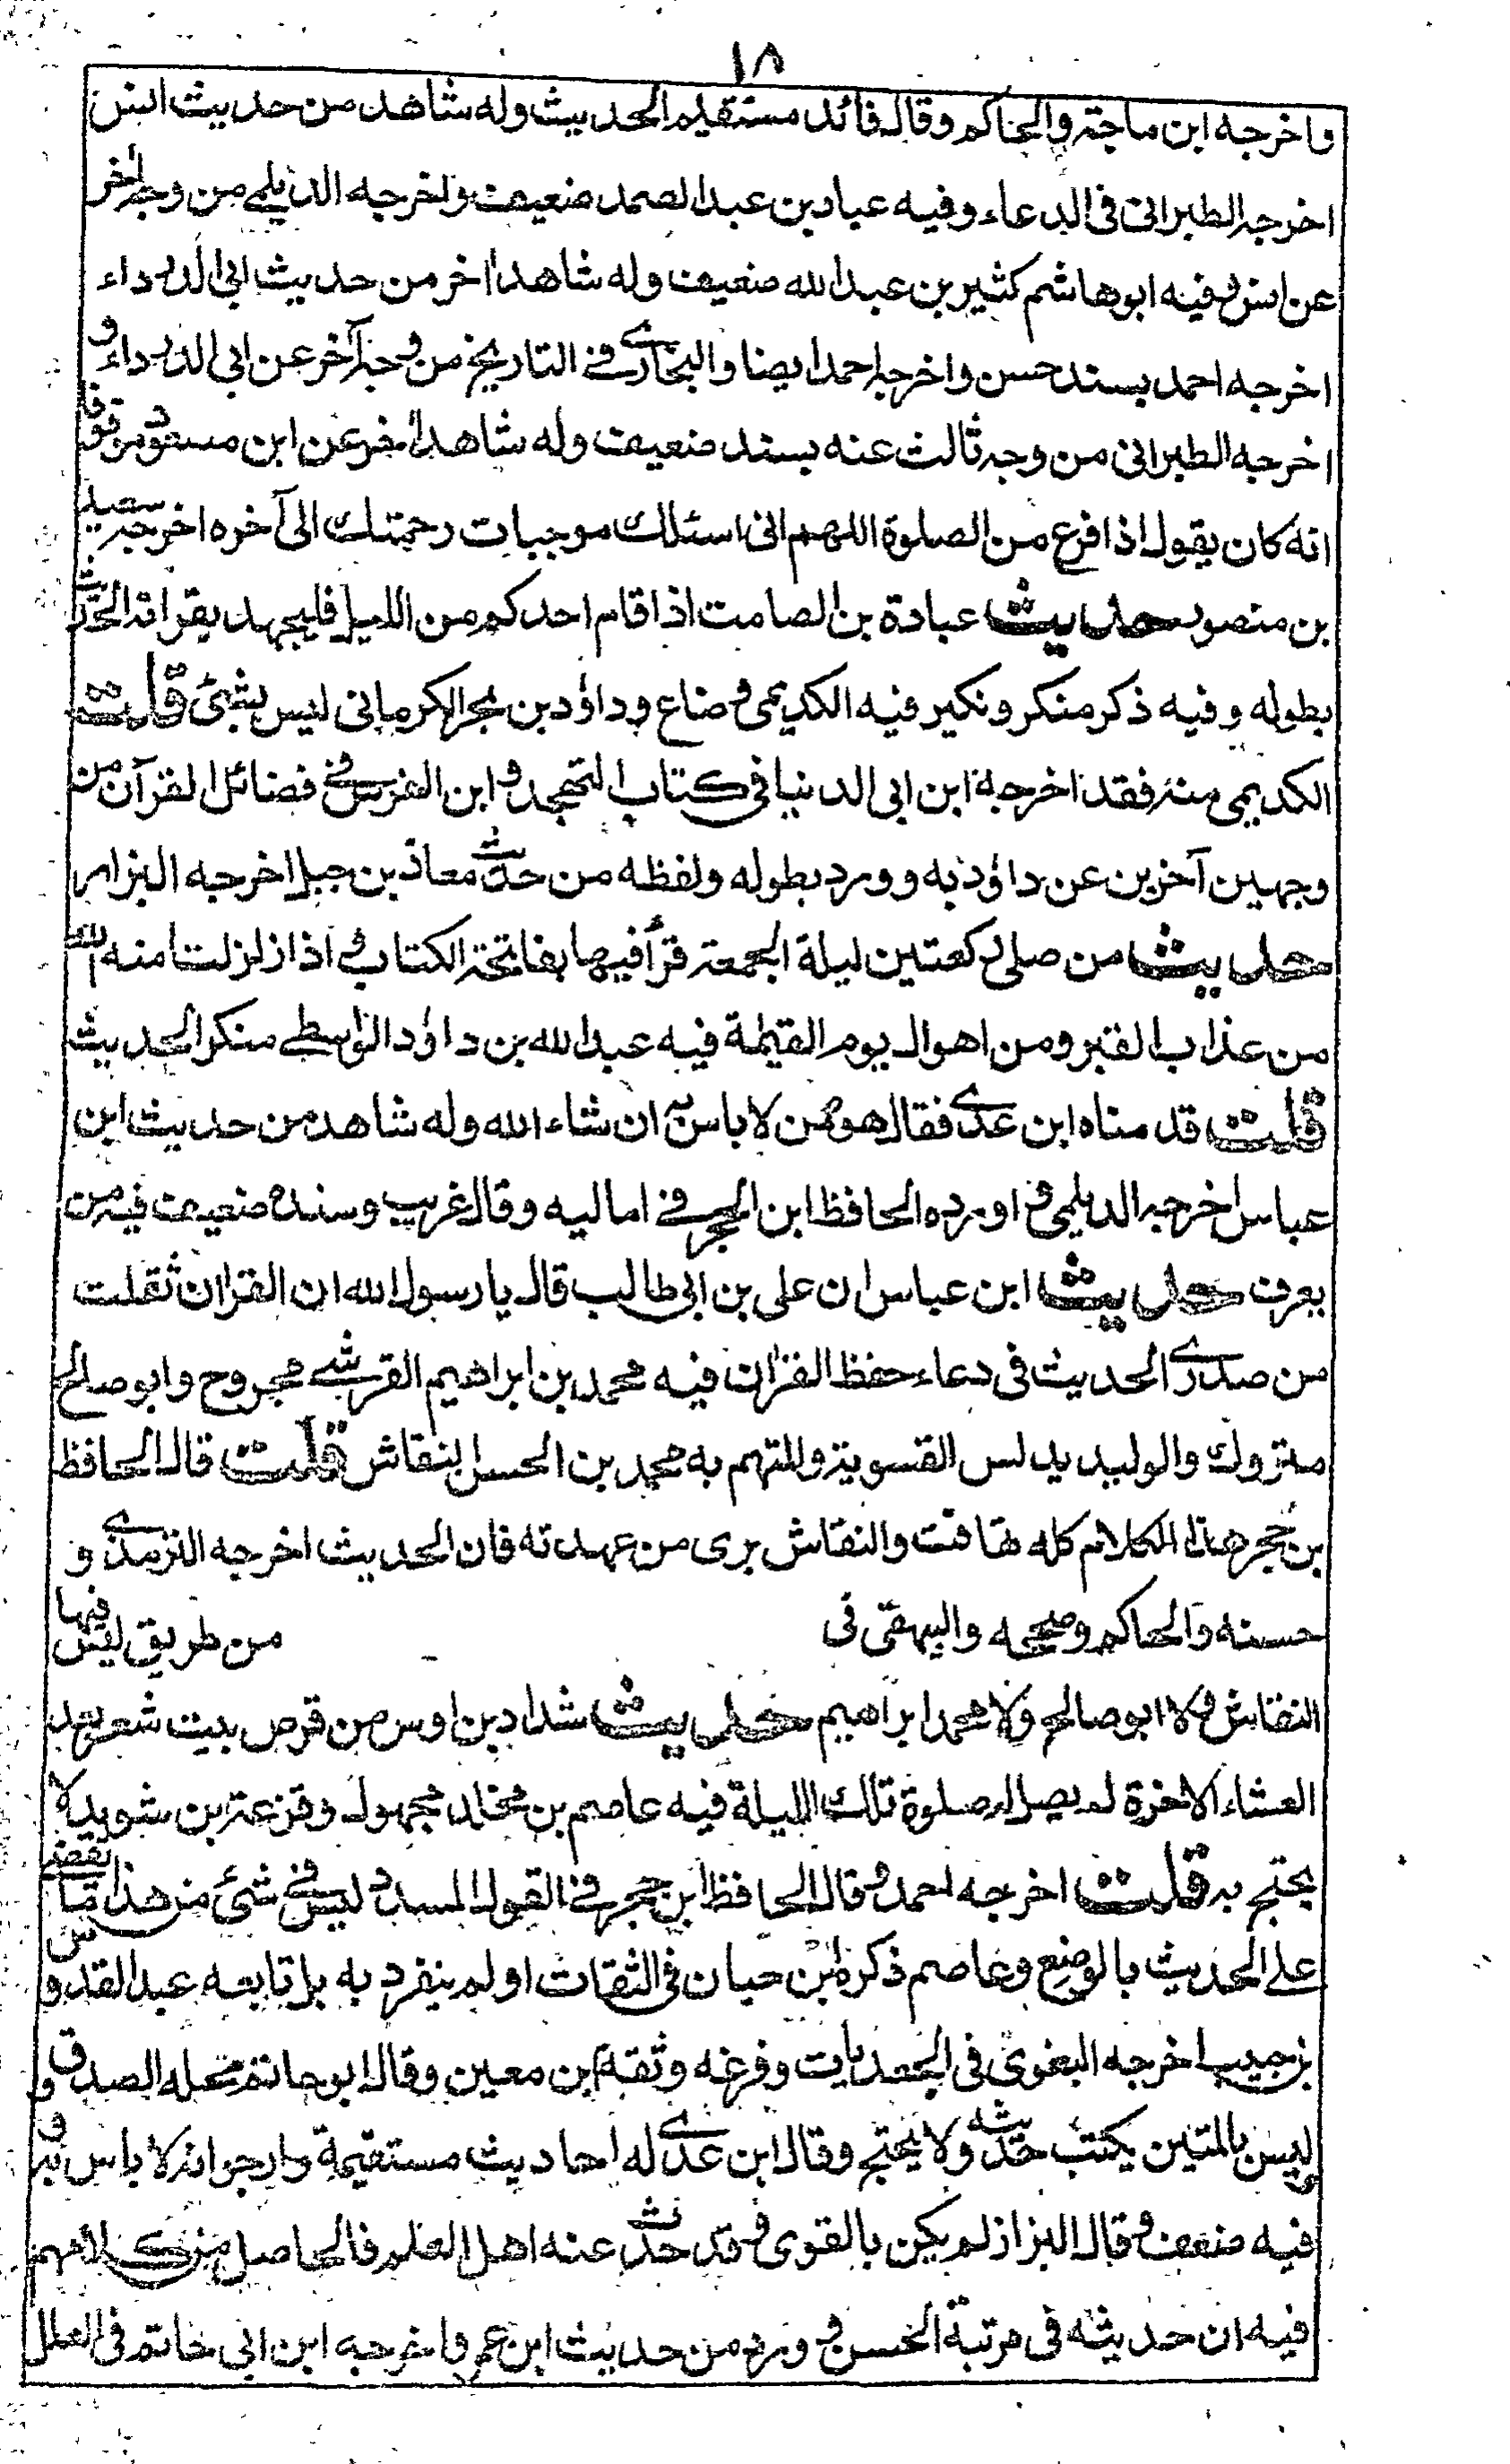 ١٨
واخرجه ابن ماجة والحاكم وقال فائد مستقيم الحديث وله شاهد من حديث انس
اخرجه الطبرانى فى الدعاء وفيه عباد بن عبد الصمد ضعيف واخرجه الديلمى من وجه اخر
عن انس وفيه ابو هاشم كثير بن عبد الله ضعيف وله شاهد اخر من حديث ابى الدرداء
اخرجه احمد بسند حسن واخرجه احمد ايضا والبخارى فى التاريخ من وجه آخر عن ابى الدرداء و
اخرجه الطبرانى من وجه ثالث عنه بسند ضعيف وله شاهد اخر عن ابن مسعود موقوفا
انه كان يقول اذا فرغ من الصلوة اللهم انى اسئلك موجبات رحمتك الى آخره اخرجه سعيد
بن منصور حديث عبادة بن الصامت اذا قام احدكم من الليل فليجهد بقراته الحديث
بطوله وفيه ذكر منكر ونكير فيه الكديمى وضاع وداؤد بن بحر الكرمانى ليس بشئ قلت
الكديمى منه فقد اخرجه ابن ابى الدنيا فى كتاب التهجد و ابن الضريس فى فضائل القرآن من
وجهين آخرين عن داؤد به وورد بطوله ولفظه من حديث معاذ بن جبل اخرجه البزار
حديث من صلى ركعتين ليلة الجمعة قرأ فيها بفاتحة الكتاب و اذا زلزلت امنه الله
من عذاب القبر ومن اهوال يوم القيمة فيه عبد الله بن داؤد الواسطى منكر الحديث
قلت قد مناه ابن عدى فقال هو ممن لا باس به ان شاء الله وله شاهد من حديث ابن
عباس اخرجه الديلمى و اورده الحافظ ابن الحجر فى اماليه وقال غريب وسنده ضعيف فيه من
يعرف حديث ابن عباس ان على بن ابى طالب قال يا رسول الله ان القران ثقلت
من صدرى الحديث فى دعاء حفظ القران فيه محمد بن ابراهيم القرشى مجروح وابو صالح
متروك والوليد يدلس القسوية والمتهم به محمد بن الحسن النقاش قلت قال الحافظ
بن حجر هذا الكلام كله تهافت والنقاش برى من عهدته فان الحديث اخرجه الترمذى و
حسنه والحاكم وصححه والبيهقى فى من طريق ليس فيها
النقاش ولا ابو صالح ولا محمد ابراهيم حديث شداد بن اوس من قرض بيت شعر بعد
العشاء الاخرة لم يصل له صلوة تلك الليلة فيه عاصم بن مخلد مجهول وقزعة بن سويد لا
يحتج به قلت اخرجه احمد و قال الحافظ ابن حجر فى القول المسدد ليس فى شئ من هذا ما يقضى
على الحديث بالوضع وعاصم ذكره ابن حبان فى الثقات او لم ينفرد به بل تابعه عبد القدوس
بن حبيب اخرجه البغوى فى الجعديات وقزعة وثقه ابن معين وقال ابو حاتم محله الصدق و
ليس بالمتين يكتب حديثه ولا يحتج وقال ابن عدى له احاديث مستقيمة وارجو انه لا باس به و
فيه ضعف و قال البزاز لم يكن بالقوى و قد حدث عنه اهل العلم فالحاصل من كلامهم
فيه ان حديثه فى مرتبة الحسن و ورد من حديث ابن عمر واخرجه ابن ابى حاتم فى العلل